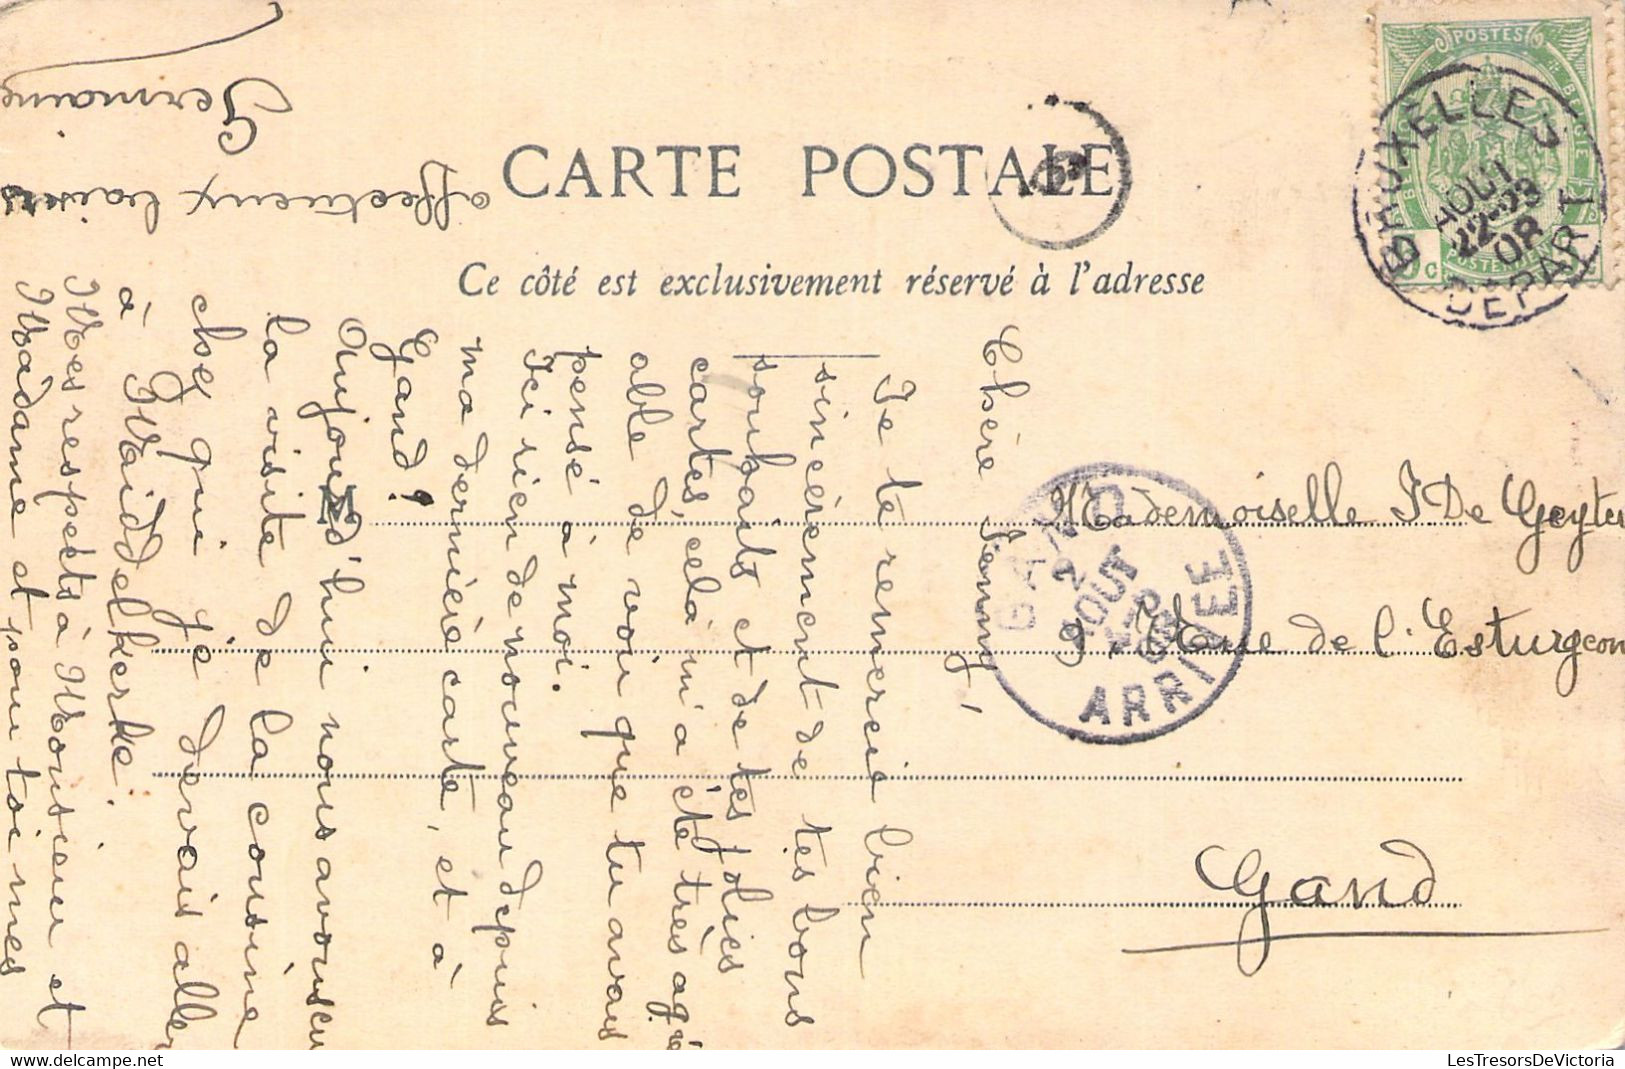 CARTE POSTALE
Ce côté est exclusivement réservé à l'adresse
POSTES
BELGIQUE
BRUXELLES
AOUT
22-23
08
DEPART
GAND
AOUT
08
ARRIVEE
Mademoiselle J De Geyter
9 Rue de l'Esturgeon
Gand
Chère Jenny,
Je te remercie bien
sincèrement de tes bons
souhaits et de tes jolies
cartes, cela m'a été très agré
able de voir que tu avais
pensé à moi.
Ici rien de nouveau depuis
ma dernière carte, et à
Gand?
Aujourd'hui nous avons eu
la visite de la cousine
chez qui je devais aller
à Maiddelkerke.
Mes respects à Monsieur et
Madame et pour toi mes
affectueux baisers
Germaine
LesTresorsDeVictoria